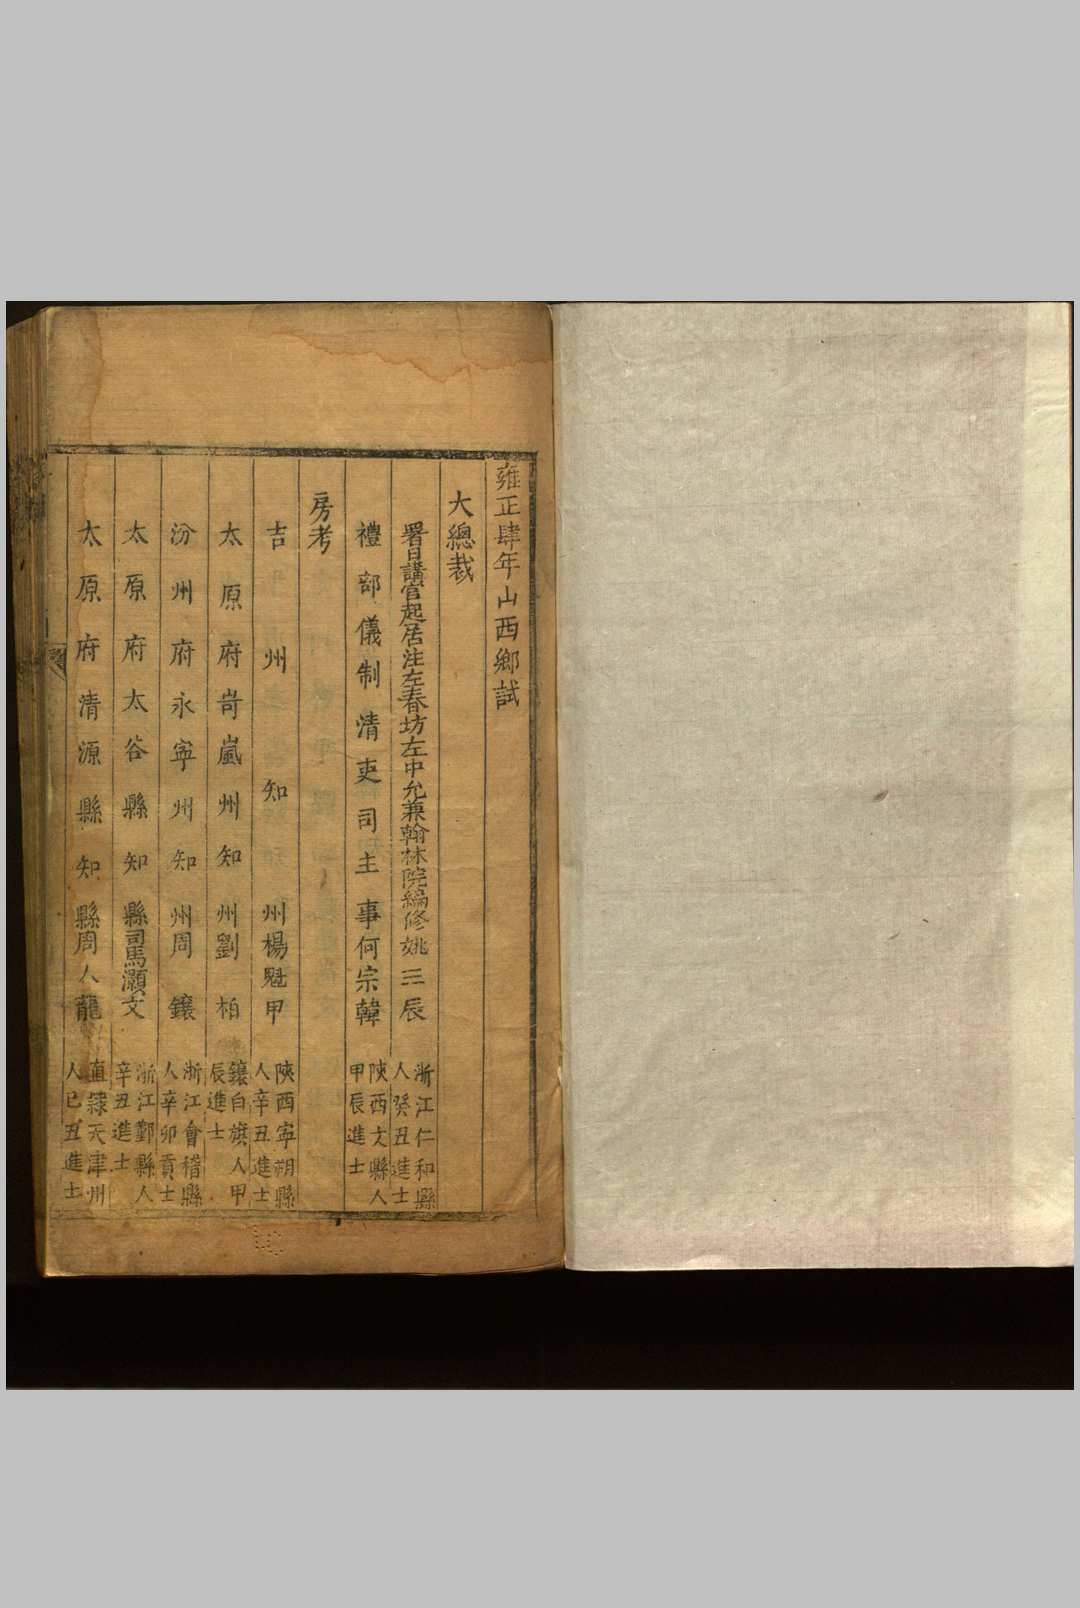 雍正肆年山西鄉試
大總裁
署日講官起居注左春坊左中允兼翰林院編修姚三辰 浙江仁和縣人癸丑進士
禮部儀制清吏司主事何宗韓 陝西文縣人甲辰進士
房考
吉州知州楊魁甲 陝西寧朔縣人辛丑進士
太原府岢嵐州知州劉柏 鑲白旗人甲辰進士
汾州府永寧州知州周鑲 浙江會稽縣人辛卯貢士
太原府太谷縣知縣司馬灝文 浙江鄞縣人辛丑進士
太原府清源縣知縣周人龍 直隸天津州人已丑進士